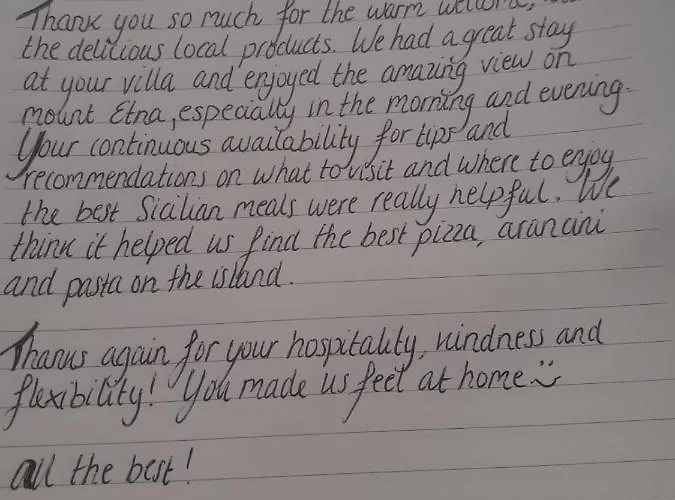 Thank you so much for the warm welcome,
the delicious local products. We had a great stay
at your villa and enjoyed the amazing view on
mount Etna, especially in the morning and evening.
Your continuous availability for tips and
recommendations on what to visit and where to enjoy
the best Sicilian meals were really helpful. We
think it helped us find the best pizza, arancini
and pasta on the island.
Thanks again for your hospitality, kindness and
flexibility! You made us feel at home
all the best!